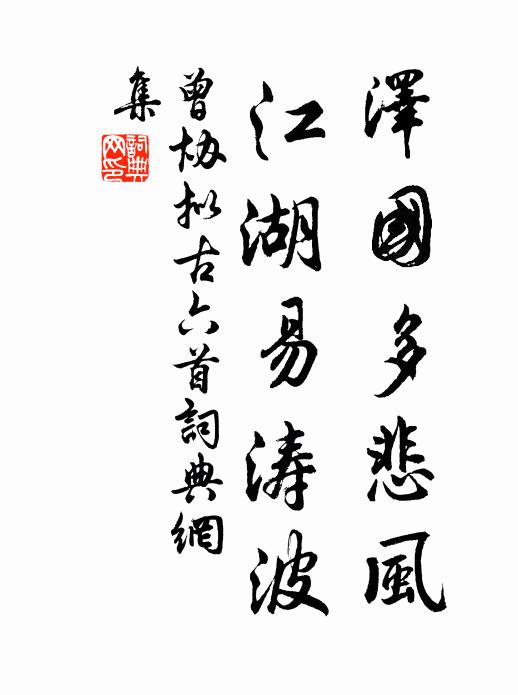 澤國多悲風
江湖易濤波
曾協擬古六首詞典網
集
詞典
网印